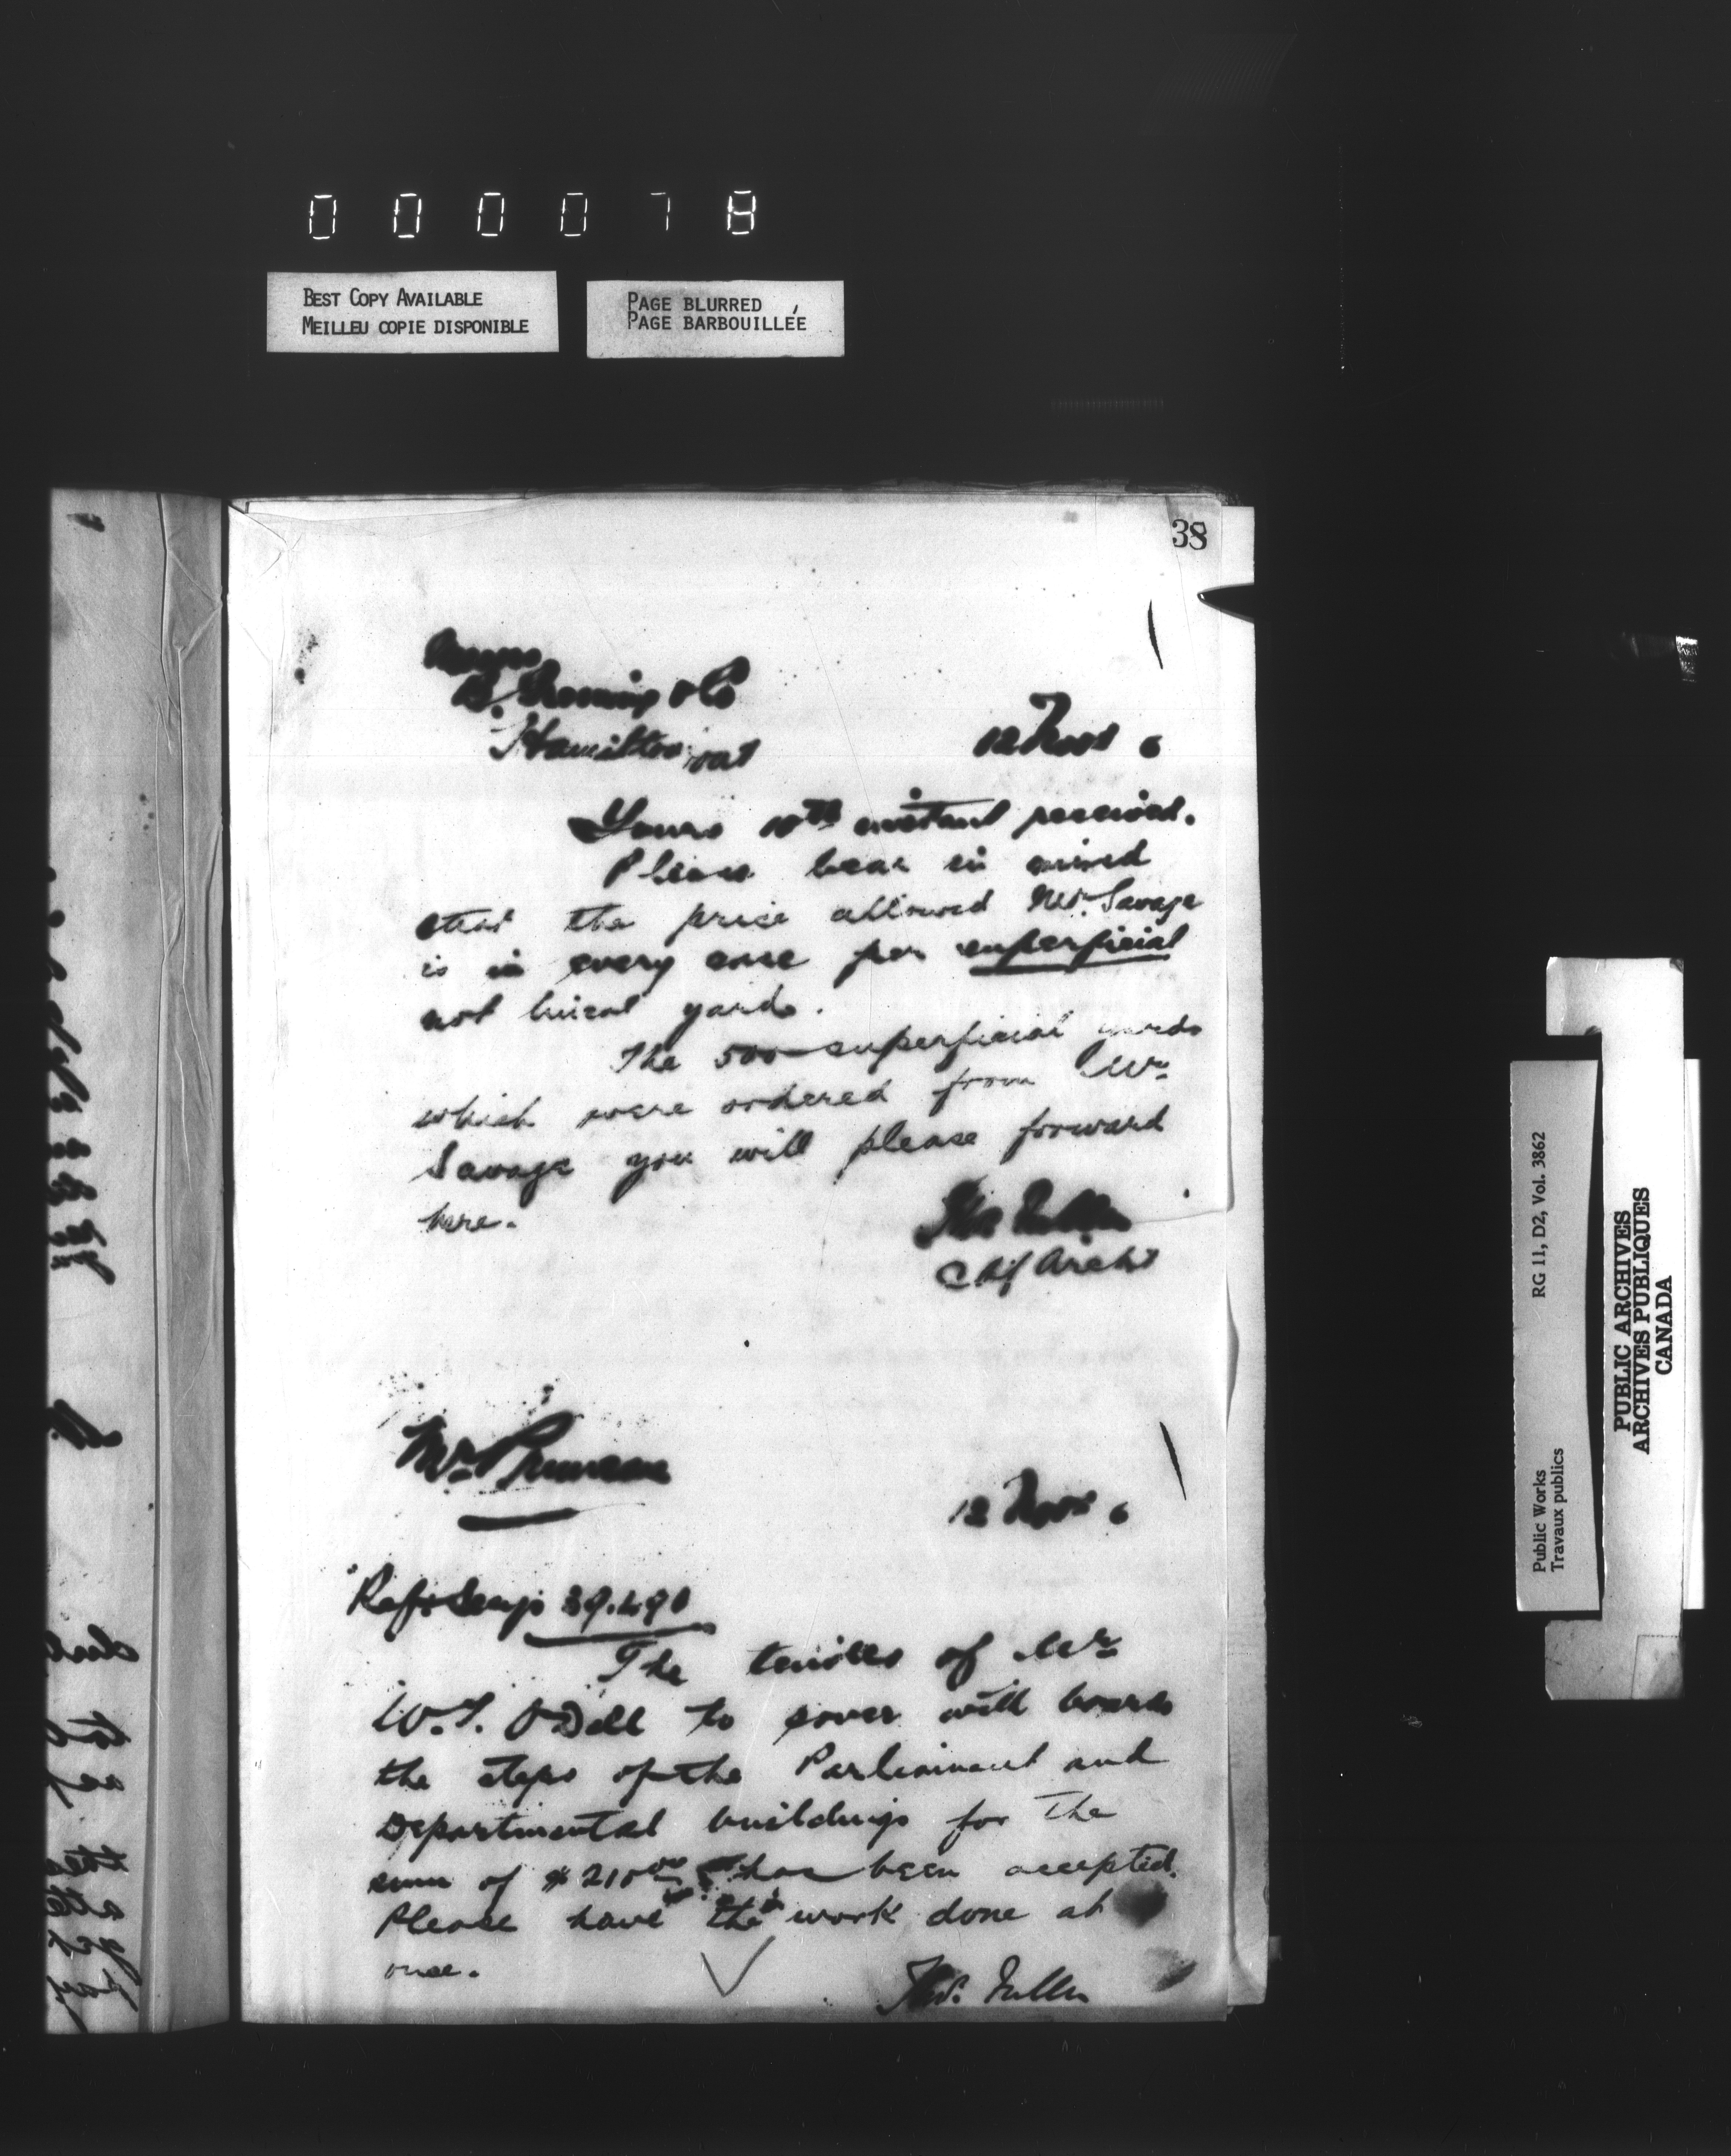 000078
BEST COPY AVAILABLE
MEILLEU COPIE DISPONIBLE
PAGE BLURRED
PAGE BARBOUILLÉE
38
Messrs
B. Greening & Co
Hamilton Ont
12 Novr 6
Yours 10th instant received.
Please bear in mind
that the price allowed Mr. Savage
is in every case per superficial
not lineal yards.
The 500 superficial yards
which were ordered from Mr
Savage you will please forward
here.
Thos Fuller
Chf Archt
Mr
12 Novr 6
39.490
The tender of Mr
W. T. O'Dell to cover with boards
the steps of the Parliament and
Departmental buildings for the
sum of $210.00 has been accepted.
Please have the work done at
once.
Thos. Fuller
Public Works
Travaux publics
RG 11, D2, Vol. 3862
PUBLIC ARCHIVES
ARCHIVES PUBLIQUES
CANADA